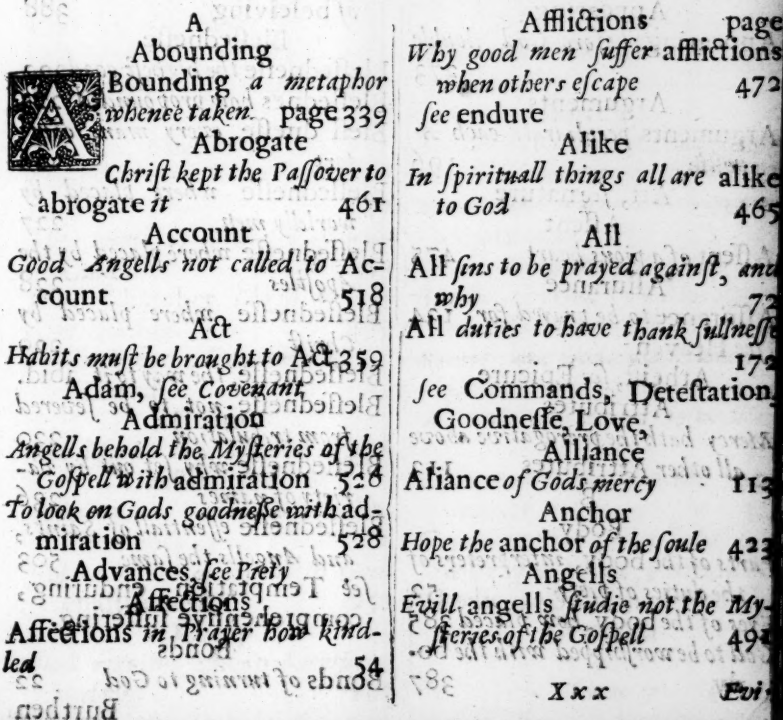 A
Abounding
ABounding a metaphor
whence taken. page 339
Abrogate
Chriſt kept the Paſſover to
abrogate it 461
Account
Good Angells not called to Ac-
count 518
Act
Habits muſt be brought to Act 359
Adam, ſee Covenant
Admiration
Angells behold the Myſteries of the
Goſpell with admiration 528
To look on Gods goodneſſe with ad-
miration 528
Advances, ſee Piety
Affections
Affections in Prayer how kind-
led 54
Afflictions page
Why good men ſuffer afflictions
when others eſcape 472
ſee endure
Alike
In ſpirituall things all are alike
to God 465
All
All ſins to be prayed againſt, and
why 72
All duties to have thankfullneſſe
172
ſee Commands, Deteſtation
Goodneſſe, Love,
Alliance
Aliance of Gods mercy 113
Anchor
Hope the anchor of the ſoule 423
Angells
Evill angells ſtudie not the My-
ſteries of the Goſpell 491
X x x Evi-